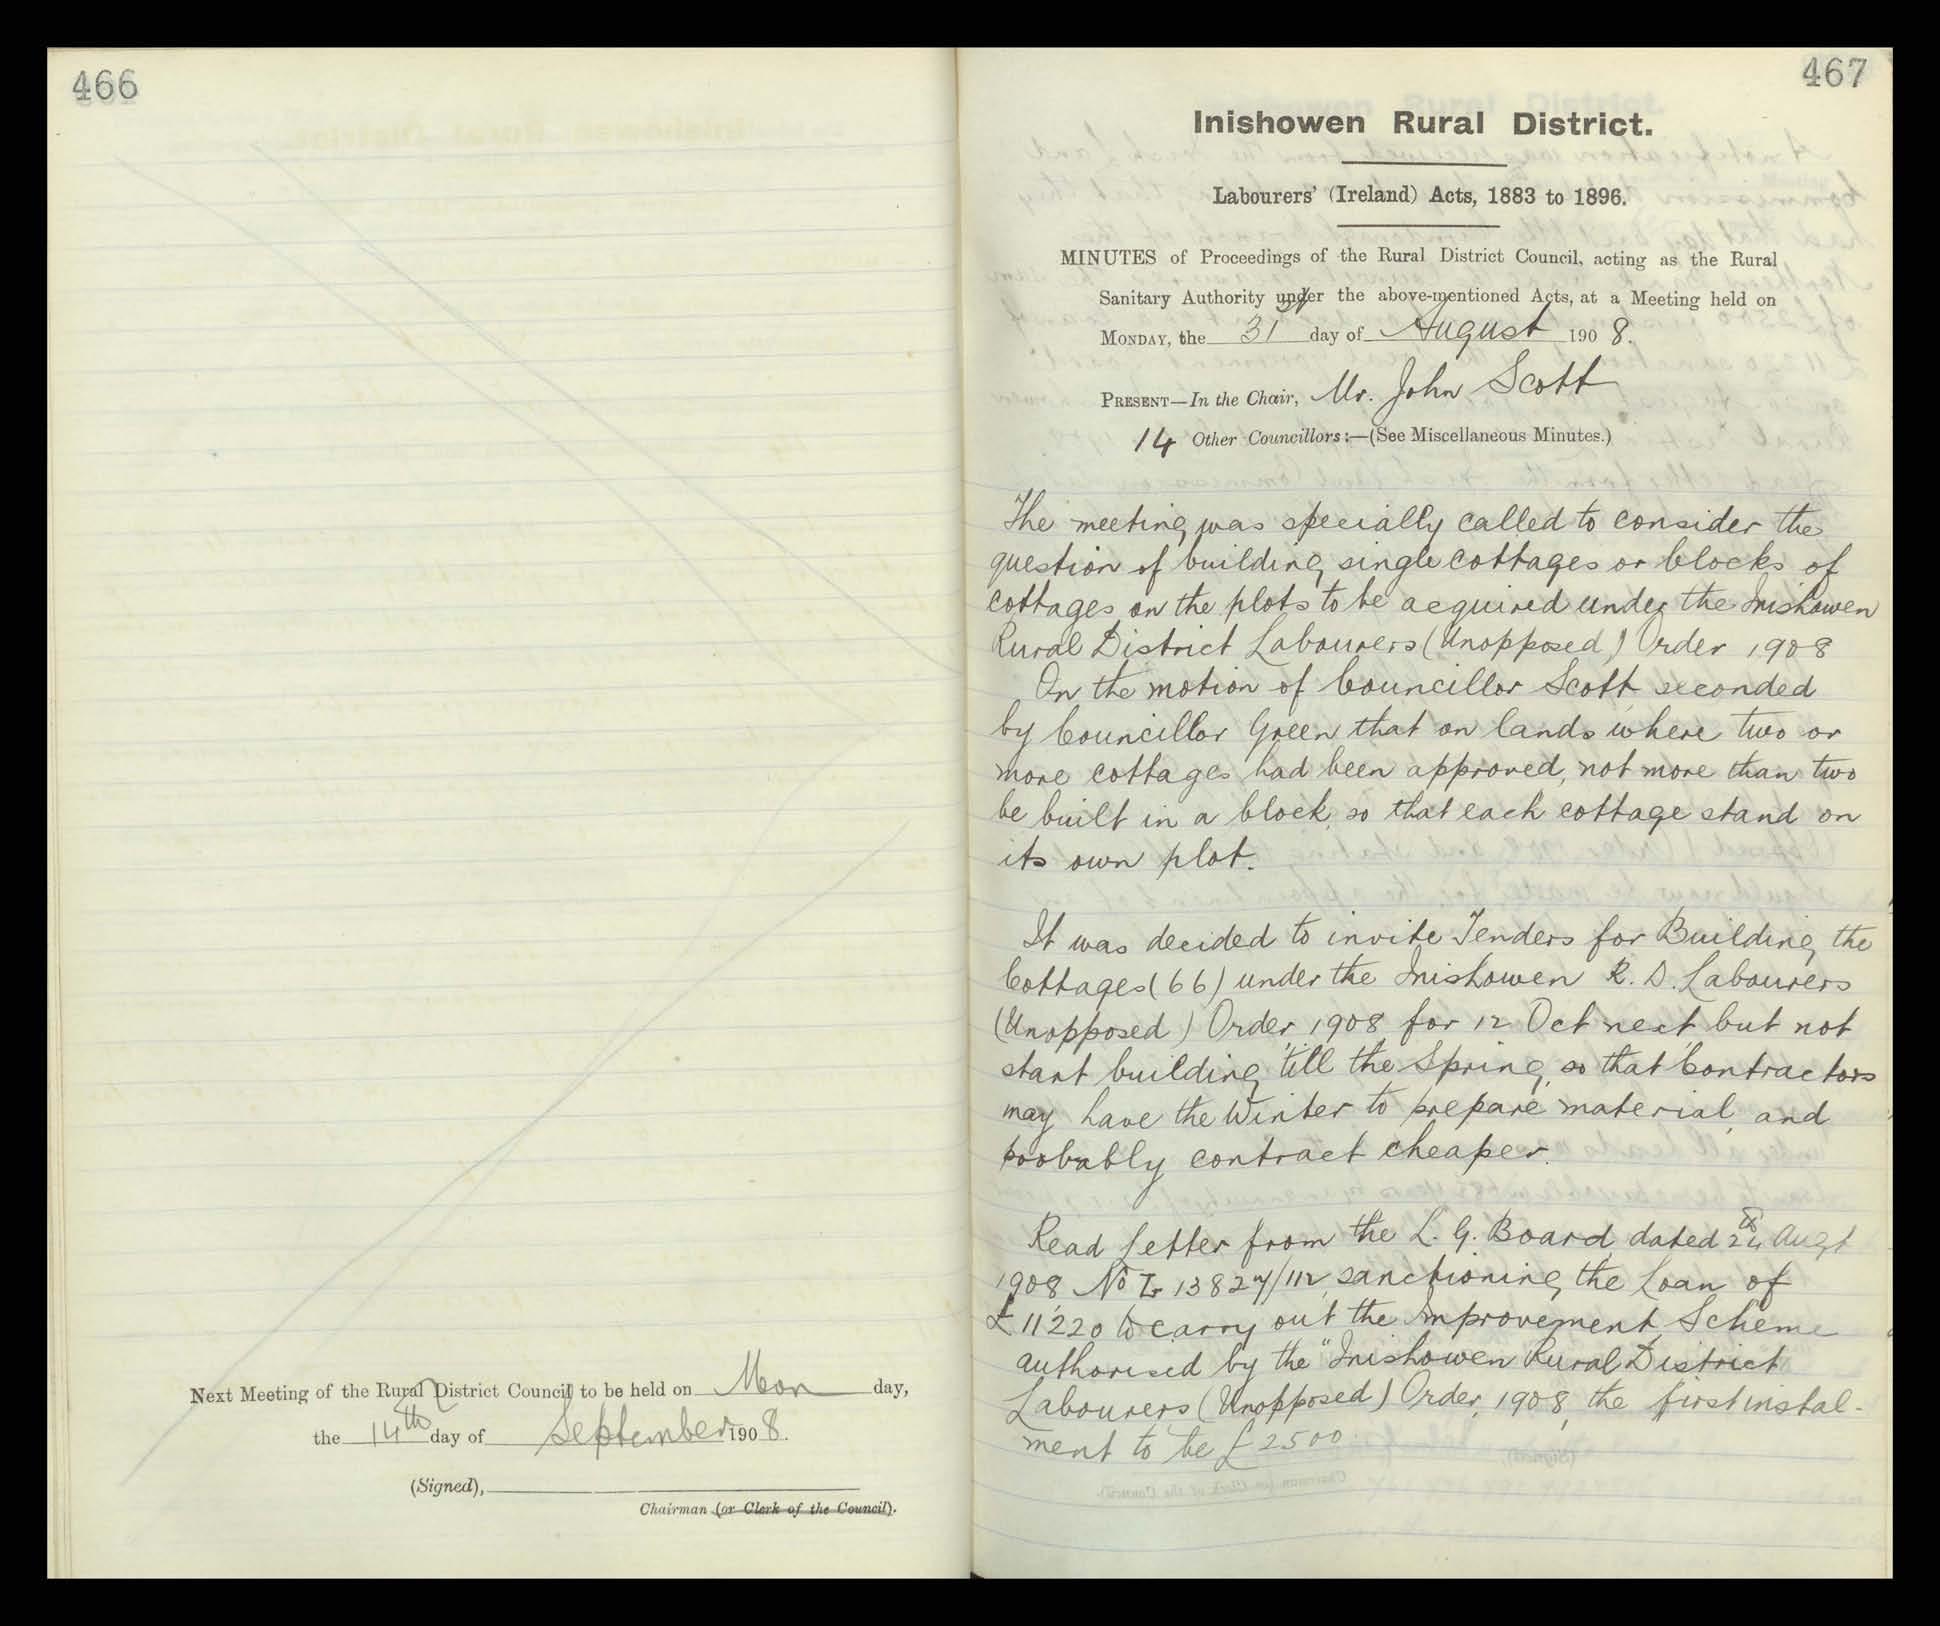 466
Next Meeting of the Rural District Council to be held on Mon day,
the 14th day of September 1908.
(Signed),
Chairman (or Clerk of the Council).
467
Inishowen Rural District.
Labourers' (Ireland) Acts, 1883 to 1896.
MINUTES of Proceedings of the Rural District Council, acting as the Rural
Sanitary Authority under the above-mentioned Acts, at a Meeting held on
MONDAY, the 31st day of August 1908.
PRESENT—In the Chair, Mr. John Scott
14 Other Councillors:—(See Miscellaneous Minutes.)
The meeting was specially called to consider the
question of building single cottages or blocks of
cottages on the plots to be acquired under the Inishowen
Rural District Labourers (Unopposed) Order 1908
On the motion of Councillor Scott seconded
by Councillor Green that on lands where two or
more cottages had been approved, not more than two
be built in a block, so that each cottage stand on
its own plot.
It was decided to invite Tenders for Building the
Cottages (66) under the Inishowen R. D. Labourers
(Unopposed) Order, 1908 for 12 Oct next, but not
start building till the Spring, so that Contractors
may have the Winter to prepare material, and
probably contract cheaper.
Read letter from the L. G. Board, dated 24th Augt
1908 No 13827/112, sanctioning the Loan of
£11220 to carry out the Improvement Scheme
authorised by the "Inishowen Rural District
Labourers (Unopposed) Order, 1908, the first instal-
ment to be £2500.